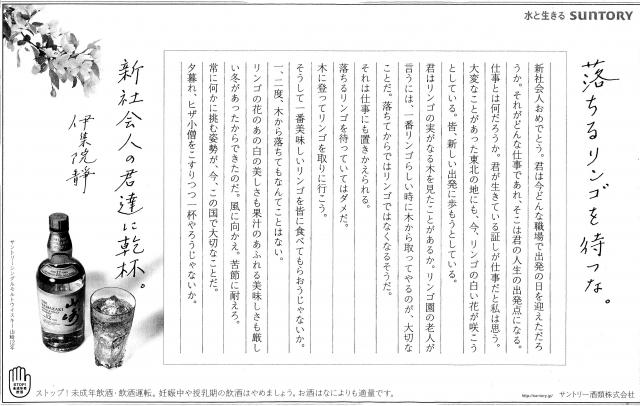 水と生きる SUNTORY
落ちるリンゴを待つな。
新社会人おめでとう。君は今どんな職場で出発の日を迎えただろ
うか。それがどんな仕事であれ、そこは君の人生の出発点になる。
仕事とは何だろうか。君が生きている証しが仕事だと私は思う。
大変なことがあった東北の地にも、今、リンゴの白い花が咲こう
としている。皆、新しい出発に歩もうとしている。
君はリンゴの実がなる木を見たことがあるか。リンゴ園の老人が
言うには、一番リンゴらしい時に木から取ってやるのが、大切な
ことだ。落ちてからではリンゴではなくなるそうだ。
それは仕事にも置きかえられる。
落ちるリンゴを待っていてはダメだ。
木に登ってリンゴを取りに行こう。
そうして一番美味しいリンゴを皆に食べてもらおうじゃないか。
一、二度、木から落ちてもなんてことはない。
リンゴの花のあの白の美しさも果汁のあふれる美味しさも厳し
い冬があったからできたのだ。風に向かえ。苦節に耐えろ。
常に何かに挑む姿勢が、今、この国で大切なことだ。
夕暮れ、ヒザ小僧をこすりつつ一杯やろうじゃないか。
新社会人の君達に乾杯。
伊集院静
山崎
サントリーシングルモルトウイスキー山崎12年
STOP!
未成年飲酒
ストップ!未成年飲酒・飲酒運転。妊娠中や授乳期の飲酒はやめましょう。お酒はなによりも適量です。
http://suntory.jp/ サントリー酒類株式会社